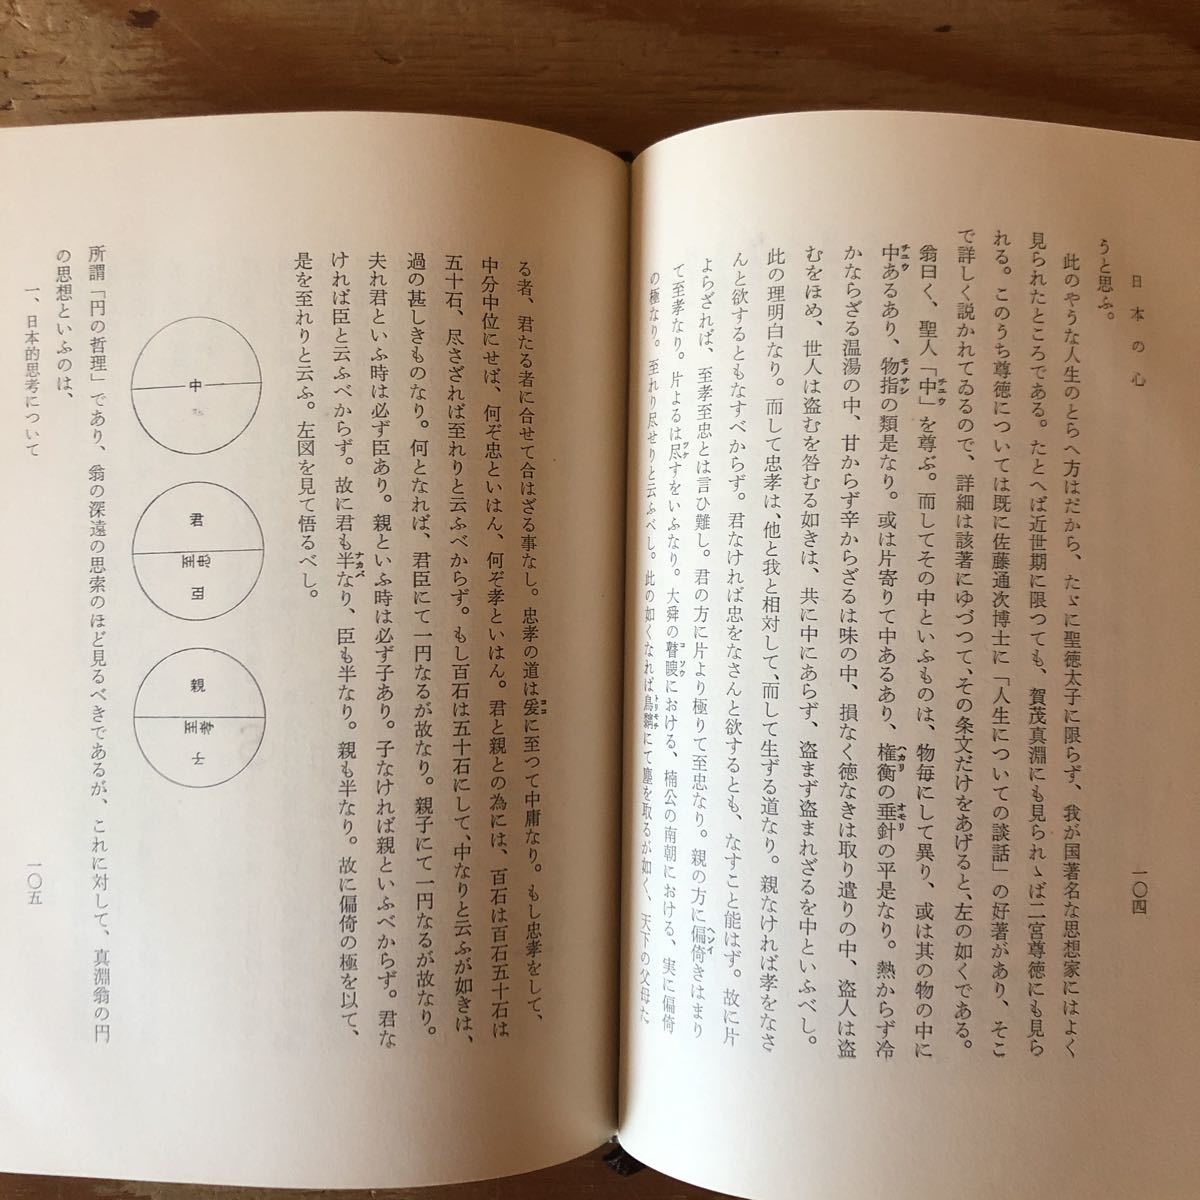 日本の心
一〇四
うと思ふ。
此のやうな人生のとらへ方はだから、たゞに聖徳太子に限らず、我が国著名な思想家にはよく
見られたところである。たとへば近世期に限つても、賀茂真淵にも見られゝば二宮尊徳にも見ら
れる。このうち尊徳については既に佐藤通次博士に「人生についての談話」の好著があり、そこ
で詳しく説かれてゐるので、詳細は該著にゆづつて、その条文だけをあげると、左の如くである。
翁曰く、聖人「中」を尊ぶ。而してその中といふものは、物毎にして異り、或は其の物の中に
中あるあり、物指の類是なり。或は片寄りて中あるあり、権衡の垂針の平是なり。熱からず冷
かならざる温湯の中、甘からず辛からざるは味の中、損なく徳なきは取り遣りの中、盗人は盗
むをほめ、世人は盗むを咎むる如きは、共に中にあらず、盗まず盗まれざるを中といふべし。
此の理明白なり。而して忠孝は、他と我と相対して、而して生ずる道なり。親なければ孝をなさ
んと欲するともなすべからず。君なければ忠をなさんと欲するとも、なすこと能はず。故に片
よらざれば、至孝至忠とは言ひ難し。君の方に片より極りて至忠なり。親の方に偏倚きはまり
て至孝なり。片よるは尽すをいふなり。大舜の瞽瞍における、楠公の南朝における、実に偏倚
の極なり。至れり尽せりと云ふべし。此の如くなれば鳥黐にて塵を取るが如く、天下の父母た
る者、君たる者に合せて合はざる事なし。忠孝の道は爰に至つて中庸なり。もし忠孝をして、
中分中位にせば、何ぞ忠といはん、何ぞ孝といはん。君と親との為には、百石は百石五十石は
五十石、尽さざれば至れりと云ふべからず。もし百石は五十石にして、中なりと云ふが如きは、
過の甚しきものなり。何となれば、君臣にて一円なるが故なり。親子にて一円なるが故なり。
夫れ君といふ時は必ず臣あり。親といふ時は必ず子あり。子なければ親といふべからず。君な
ければ臣と云ふべからず。故に君も半なり、臣も半なり。親も半なり。故に偏倚の極を以て、
是を至れりと云ふ。左図を見て悟るべし。
中
君
至忠
臣
親
至孝
子
所謂「円の哲理」であり、翁の深遠の思索のほど見るべきであるが、これに対して、真淵翁の円
の思想といふのは、
一、日本的思考について
一〇五